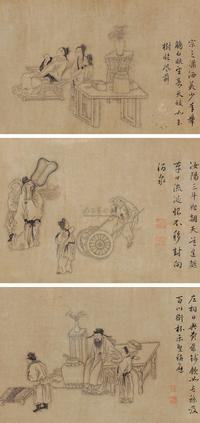 宗之瀟洒美少年舉
觴白眼望青天皎如玉
樹臨風前
汝陽三斗始朝天道逢麴
車口流涎恨不移封向
酒泉
左相日興費萬錢飲如長鯨吸
百川銜杯樂聖稱